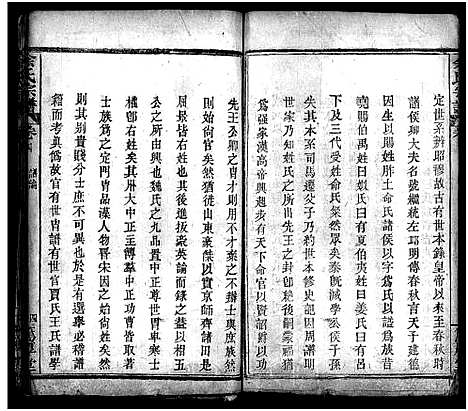 定世系辨昭穆故古有世本錄黃帝以來至春秋時
諸侯卿大夫名號繼統左邱明傳春秋言天子建德
因生以賜姓胙土命氏諸侯以字爲氏以謚爲族
昭賜伯禹姓曰姒氏曰有夏伯夷姓曰姜氏曰有呂
下及三代受姓命氏粲然眾矣秦旣滅學公侯子孫
失其本系司馬遷父子乃約世本修史記因周譜明
世家乃知姓氏之所由出先王之封旣絕後嗣蒙福
爲強家漢高帝興起步有天下命官以賢詔爵以功
先王公卿之冑才則用不才棄之不辨士與庶族然
則始尙官矣然猶徙山東豪傑以實京師齊諸田楚
屈景皆右姓也其後進拔豪英論而錄之蓋以
公之所由興也魏氏之九品置中正尊世冑卑寒士
權歸右姓矣其州大中正主簿郡中正功曹皆取著
士族爲之定門冑品藻人物晉宋因之始尙姓矣然
則其別貴賤分士庶不可易也於是有司選舉必稽譜
籍而考眞僞故官有世冑譜有世官賈氏王氏譜學
余氏宗譜
四